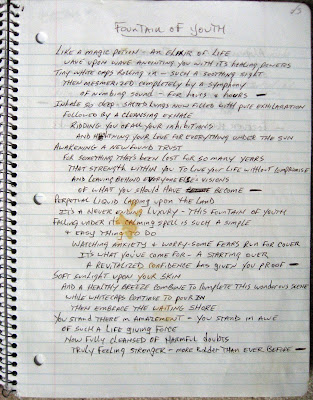 15
FOUNTAIN OF YOUTH
LIKE A MAGIC POTION - AN ELIXIR OF LIFE
WAVE UPON WAVE ANOINTING YOU WITH IT'S HEALING POWERS
TINY WHITE CAPS ROLLING IN - SUCH A SOOTHING SIGHT
THEN MESMERIZED COMPLETELY BY A SYMPHONY
OF NUMBING SOUND - FOR HOURS & HOURS -
INHALE SO DEEP - SALTED LUNGS NOW FILLED WITH PURE EXHILARATION
FOLLOWED BY A CLEANSING EXHALE
RIDDING YOU OF ALL YOUR INHIBITIONS
AND YOUR LOVE FOR EVERYTHING UNDER THE SUN
AWAKENING A NEWFOUND TRUST
FOR SOMETHING THAT'S BEEN LOST FOR SO MANY YEARS
THAT STRENGTH WITHIN YOU TO LIVE YOUR LIFE WITHOUT COMPROMISE
AND LEAVING BEHIND EVERYONE ELSE'S VISIONS
OF WHAT YOU SHOULD HAVE BECOME -
PERPETUAL LIQUID UPON THE LAND
IT'S A NEVER ENDING LUXURY - THIS FOUNTAIN OF YOUTH
FALLING UNDER ITS CALMING SPELL IS SUCH A SIMPLE
& EASY THING TO DO
WATCHING ANXIETY & WORRY-SOME FEARS RUN FOR COVER
IT'S WHAT YOU'VE COME FOR - A STARTING OVER
A REVITALIZED CONFIDENCE HAS GIVEN YOU PROOF -
SOFT SUNLIGHT UPON YOUR SKIN
AND A HEALTHY BREEZE COMBINE TO COMPLETE THIS WONDROUS SCENE
WHILE WHITECAPS CONTINUE TO POUR IN
THEN EMBRACE THE WAITING SHORE
YOU STAND THERE IN AMAZEMENT - YOU STAND IN AWE
OF SUCH A LIFE GIVING FORCE
NOW FULLY CLEANSED OF HARMFUL DOUBTS
TRULY FEELING STRONGER - MORE THAN EVER BEFORE -